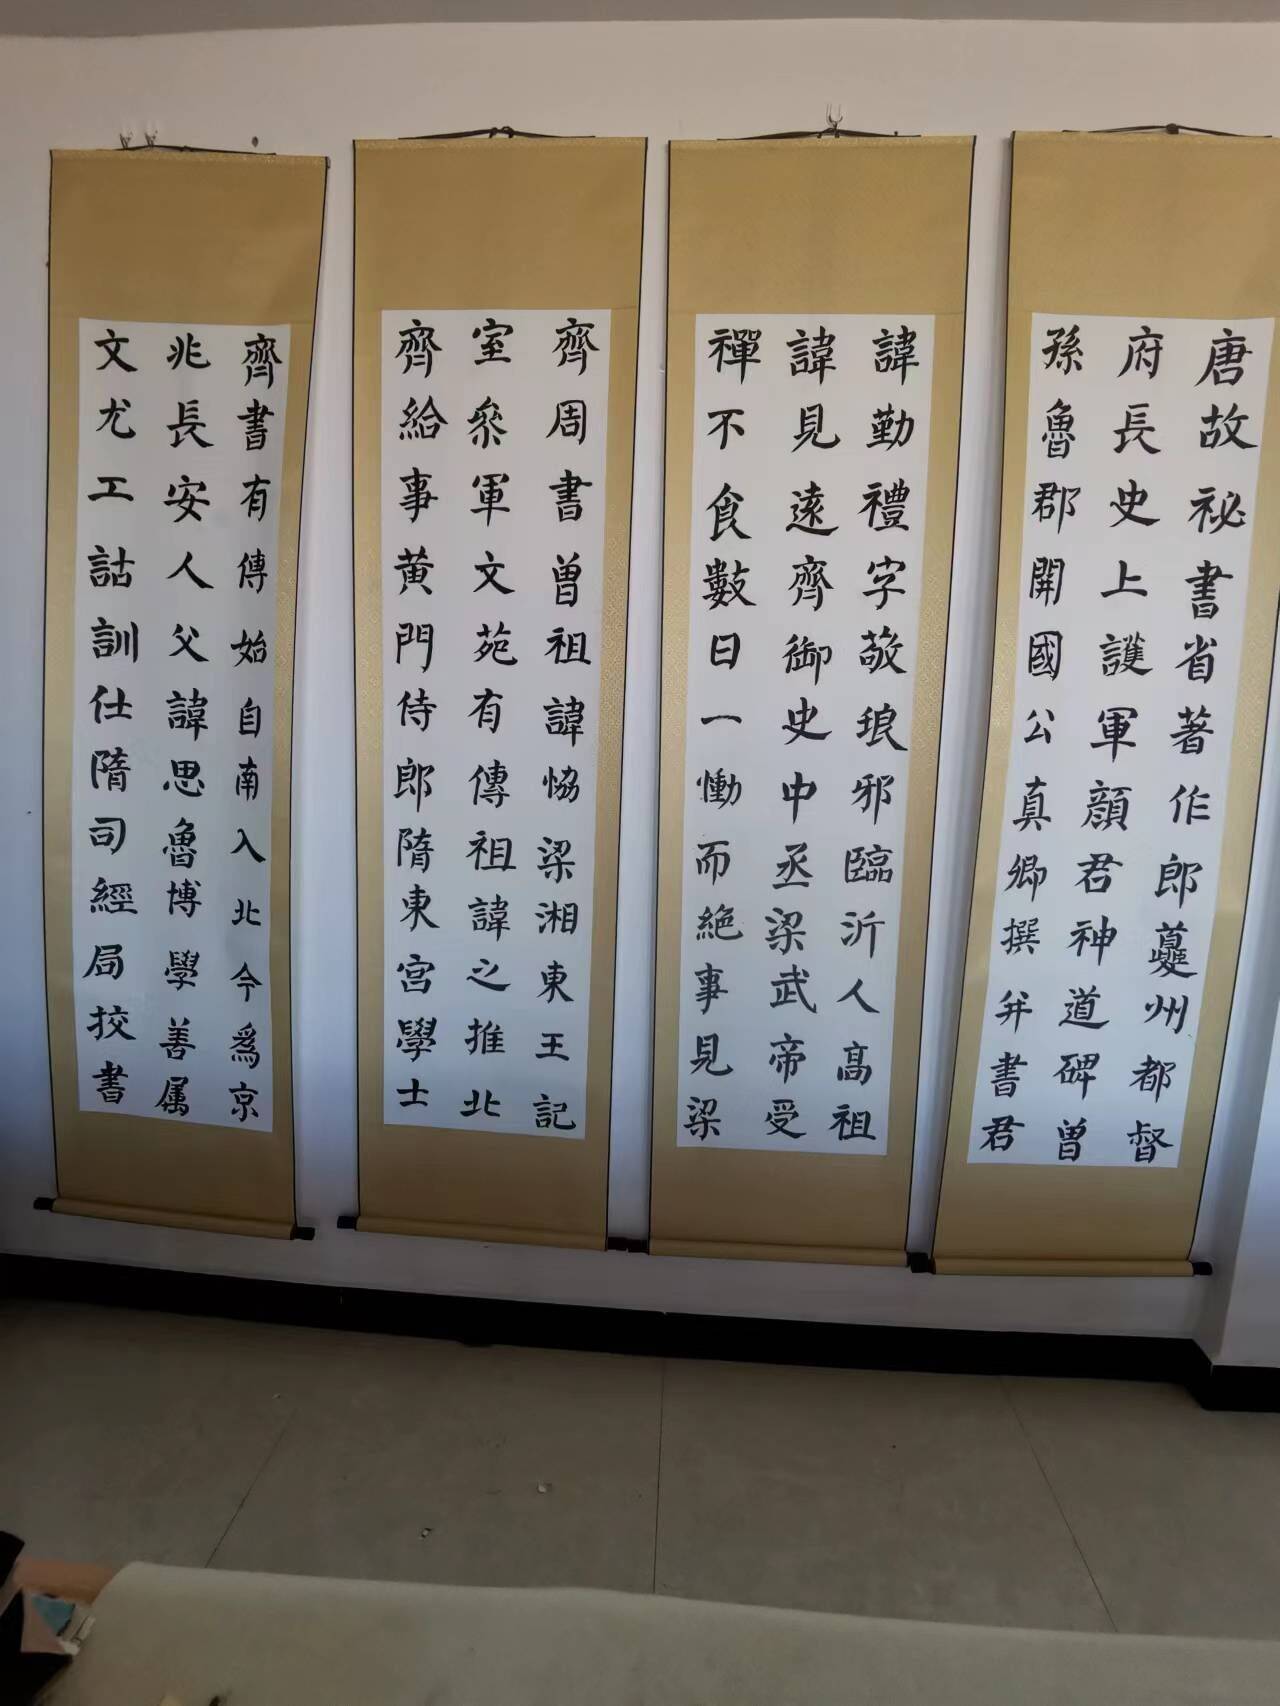 唐故祕書省著作郎夔州都督
府長史上護軍顏君神道碑曾
孫魯郡開國公真卿撰并書君
諱勤禮字敬琅邪臨沂人高祖
諱見遠齊御史中丞梁武帝受
禪不食數日一慟而絕事見梁
齊周書曾祖諱協梁湘東王記
室叅軍文苑有傳祖諱之推北
齊給事黄門侍郎隋東宮學士
齊書有傳始自南入北今爲京
兆長安人父諱思魯博學善属
文尤工詁訓仕隋司經局挍書